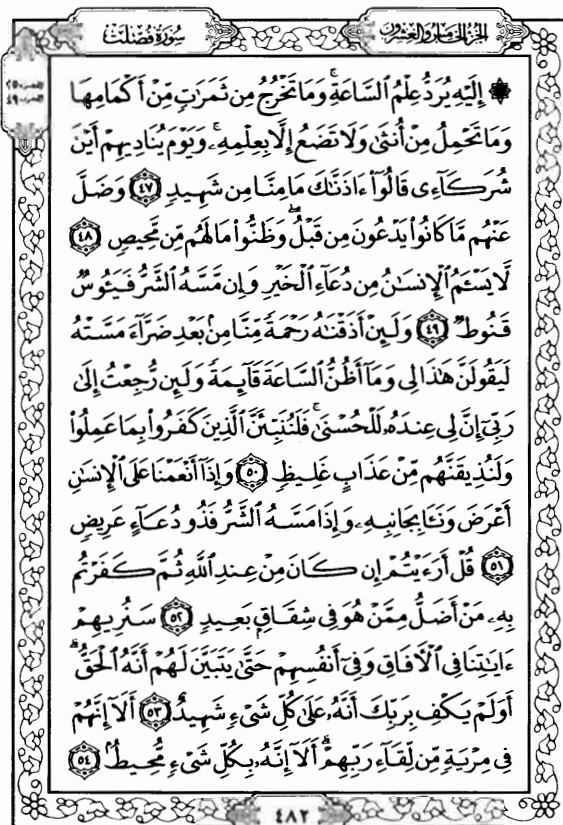 الجزء الخامس والعشرون
سورة فصلت
الجزء ٢٥
الحزب ٤٩
۞ إِلَيْهِ يُرَدُّ عِلْمُ ٱلسَّاعَةِۚ وَمَا تَخْرُجُ مِن ثَمَرَٰتٍ مِّنْ أَكْمَامِهَا
وَمَا تَحْمِلُ مِنْ أُنثَىٰ وَلَا تَضَعُ إِلَّا بِعِلْمِهِۦۚ وَيَوْمَ يُنَادِيهِمْ أَيْنَ
شُرَكَآءِى قَالُوٓا۟ ءَاذَنَّـٰكَ مَا مِنَّا مِن شَهِيدٍ ٤٧ وَضَلَّ
عَنْهُم مَّا كَانُوا۟ يَدْعُونَ مِن قَبْلُۖ وَظَنُّوا۟ مَا لَهُم مِّن مَّحِيصٍ ٤٨
لَّا يَسْـَٔمُ ٱلْإِنسَـٰنُ مِن دُعَآءِ ٱلْخَيْرِ وَإِن مَّسَّهُ ٱلشَّرُّ فَيَـُٔوسٌ
قَنُوطٌ ٤٩ وَلَئِنْ أَذَقْنَـٰهُ رَحْمَةً مِّنَّا مِنۢ بَعْدِ ضَرَّآءَ مَسَّتْهُ
لَيَقُولَنَّ هَـٰذَا لِى وَمَآ أَظُنُّ ٱلسَّاعَةَ قَآئِمَةً وَلَئِن رُّجِعْتُ إِلَىٰ
رَبِّىٓ إِنَّ لِى عِندَهُۥ لَلْحُسْنَىٰۚ فَلَنُنَبِّئَنَّ ٱلَّذِينَ كَفَرُوا۟ بِمَا عَمِلُوا۟
وَلَنُذِيقَنَّهُم مِّنْ عَذَابٍ غَلِيظٍ ٥٠ وَإِذَآ أَنْعَمْنَا عَلَى ٱلْإِنسَـٰنِ
أَعْرَضَ وَنَـَٔا بِجَانِبِهِۦ وَإِذَا مَسَّهُ ٱلشَّرُّ فَذُو دُعَآءٍ عَرِيضٍ
٥١ قُلْ أَرَءَيْتُمْ إِن كَانَ مِنْ عِندِ ٱللَّهِ ثُمَّ كَفَرْتُم
بِهِۦ مَنْ أَضَلُّ مِمَّنْ هُوَ فِى شِقَاقٍۭ بَعِيدٍ ٥٢ سَنُرِيهِمْ
ءَايَـٰتِنَا فِى ٱلْـَٔافَاقِ وَفِىٓ أَنفُسِهِمْ حَتَّىٰ يَتَبَيَّنَ لَهُمْ أَنَّهُ ٱلْحَقُّۗ
أَوَلَمْ يَكْفِ بِرَبِّكَ أَنَّهُۥ عَلَىٰ كُلِّ شَىْءٍ شَهِيدٌ ٥٣ أَلَآ إِنَّهُمْ
فِى مِرْيَةٍ مِّن لِّقَآءِ رَبِّهِمْۗ أَلَآ إِنَّهُۥ بِكُلِّ شَىْءٍ مُّحِيطٌۢ ٥٤
٤٨٢